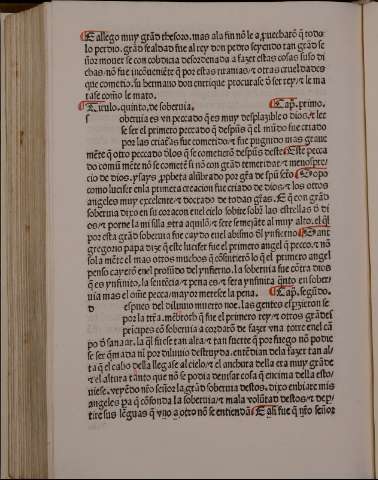 E allego muy grãd thesoro. mas ala fin nõ le a ꝓuecharõ q̃ todo
lo perdio. grãd fealdad fue al rey don pedro seyendo tan grãd se
ñor mouer se con cobdicia desordenada a fazer estas cosas suso di
chas. nõ fue incõueniẽte q̃ por estas tiranias ⁊ otras crueldades
que cometio. su hermano don enrrique procurase ð ser rey. ⁊ le ma
tase como le mato.
Titulo. quinto. de soberuia. Cap̃. primo.
s oberuia es vn peccado q̃ es muy desplazible o dios. ⁊ les
se ser el primero peccado q̃ despũs q̃l mũdo fue criado
por las criaẽas fue cometido. ⁊ fue pugnido mas graue
mẽte q̃ otro peccado dlos q̃ se cometierõ despũs deste. Este pecca
do comũ mẽte nõ se comete si nõ con grãd temeridad. ⁊ menospre
cio de dios. ysays ꝓpheta alũbrado por gr̃a de spũ sctõ.
como lucifer enla primera creacion fue criado de dios. ⁊ los otros
angeles muy excelente. ⁊ doctado de todas gr̃as. E q̃ con grãd
soberuia dixo en su coraçon enel cielo sobire sobr̃ las estrellas ð di
os. ⁊ porne la mi silla ⁊ sere semejãte al muy alto. el q̃l
por esta grãd soberuia fue caydo enel abismo dl ynfierno. Sant
gregorio papa diz q̃ este lucifer fue el primero angel q̃ pecco. ⁊ nõ
sola mẽte el mas otros muchos q̃ cõsintierõ lo q̃ el primero angel
penso cayerõ enel profũdo del ynfierno. la soberuia fue cõtra dios
q̃ es ynfinito. la sentẽcia ⁊ pena es ⁊ sera ynfinita q̃nto en sober
uia mas el om̃e pecca mayor meresce la pena. Cap̃. segũdo.
d espues del diluuio muerto noe. las gentes espzieron se
por la trr̃a. mẽbroth q̃ fue el primero rey ⁊ otros grãdes
pricipes cõ soberuia acordarõ de fazer vna torre enel cã
po ð sanaar. la q̃l fuese tan alta ⁊ tan fuerte q̃ por fuego nõ pudie
se ser q̃mada ni por diluuio destruyda. entẽdian dela fazer tan al
ta q̃ el cabo della llegase al cielo. ⁊ el anchura della era muy grãde
⁊ el altura tanto que nõ se podia deuisar cosa q̃ encima della esto
uiese. veyẽdo nr̃o señor la grãd soberuia destos. dixo enbiare mis
angeles pa q̃ cõfonda la soberuia ⁊ mala volũtad destos. ⁊ depar
tire sus lẽguas q̃ vno a otro nõ se entiendã. E aq̃l fue q̃ nr̃o señor